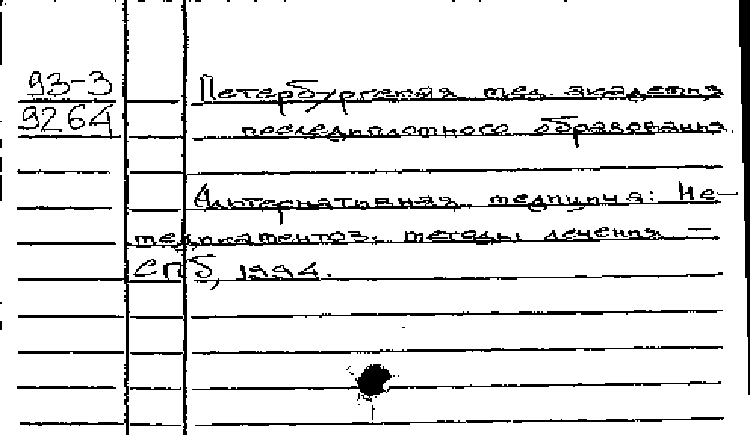 93-3
9264
Петербургская мед. академия
последипломного образования
Альтернативная медицина: Не-
медикаментоз. методы лечения –
СПб, 1994.